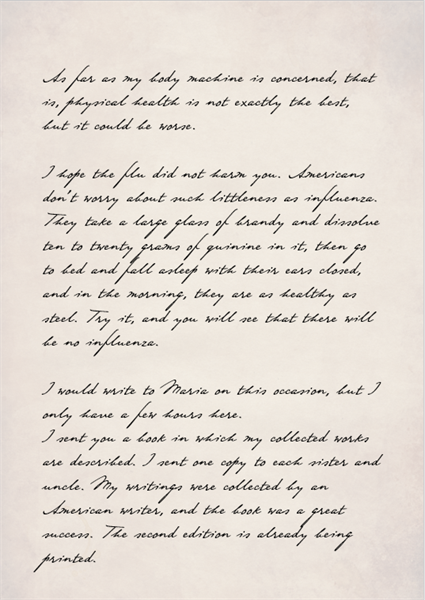 As far as my body machine is concerned, that
is, physical health is not exactly the best,
but it could be worse.
I hope the flu did not harm you. Americans
don't worry about such littleness as influenza.
They take a large glass of brandy and dissolve
ten to twenty grams of quinine in it, then go
to bed and fall asleep with their ears closed,
and in the morning, they are as healthy as
steel. Try it, and you will see that there will
be no influenza.
I would write to Maria on this occasion, but I
only have a few hours here.
I sent you a book in which my collected works
are described. I sent one copy to each sister and
uncle. My writings were collected by an
American writer, and the book was a great
success. The second edition is already being
printed.